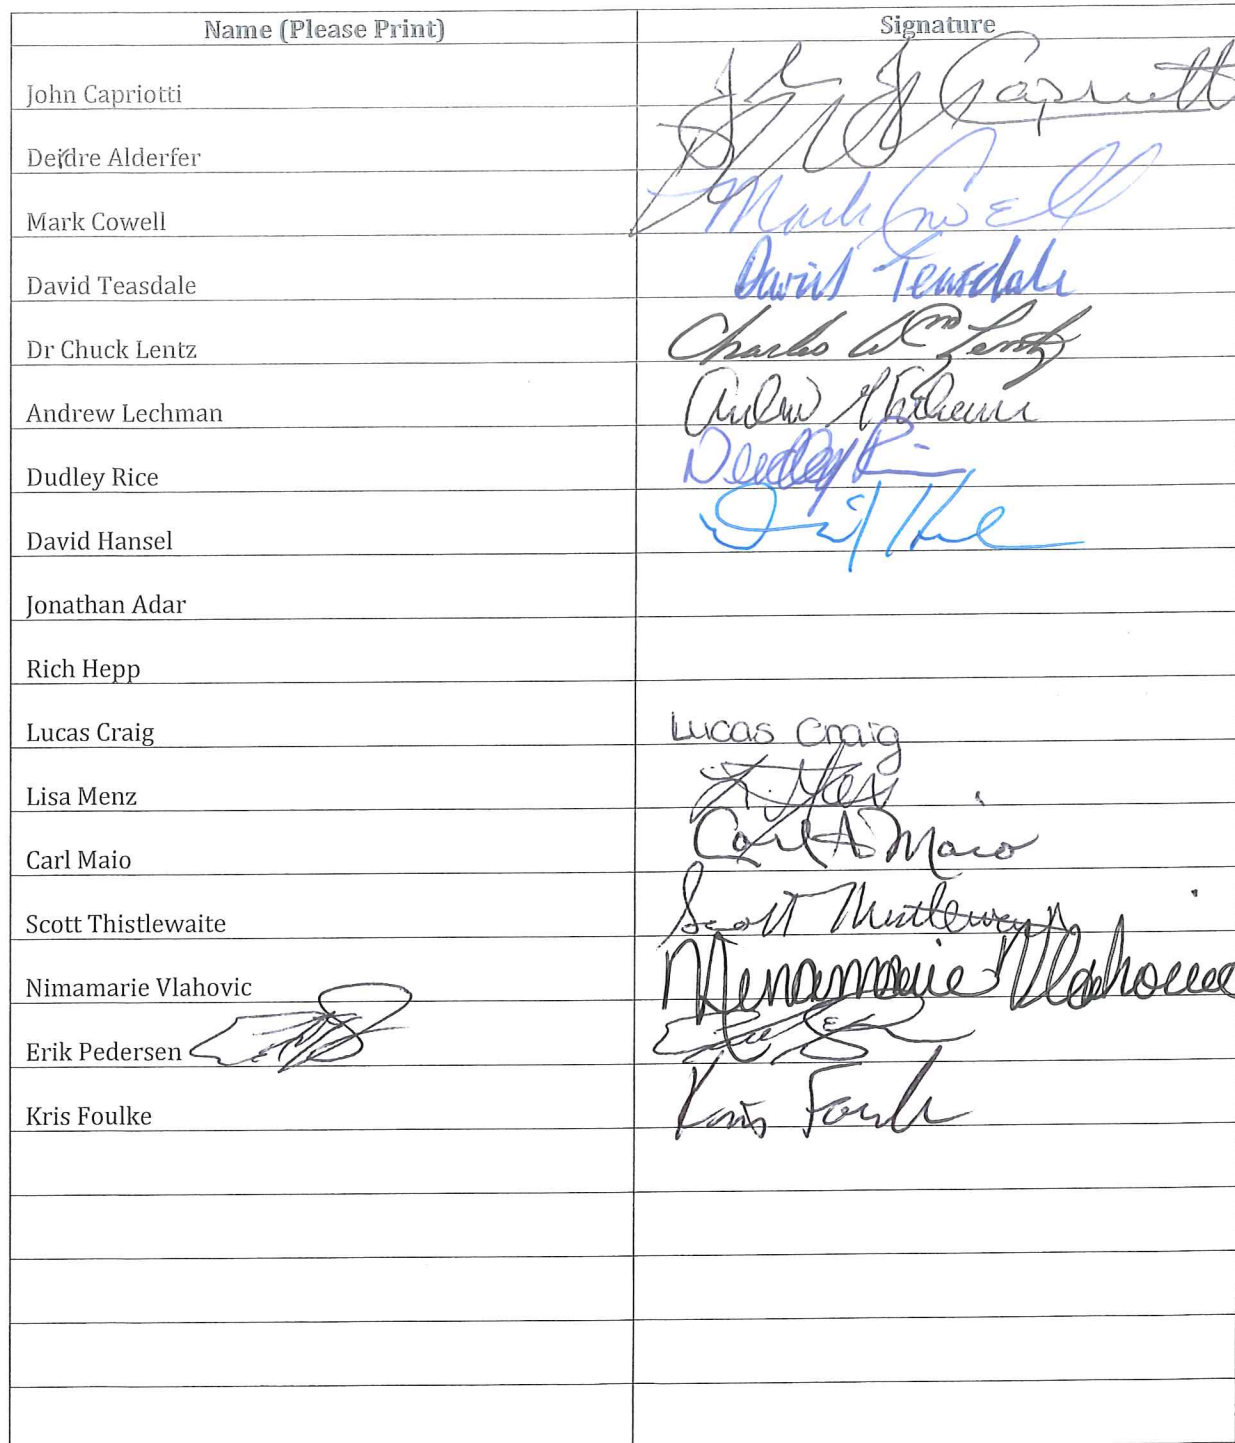 Name (Please Print) Signature
John Capriotti John J Capriotti
Deirdre Alderfer
Mark Cowell Mark Cowell
David Teasdale David Teasdale
Dr Chuck Lentz Charles Wm Lentz
Andrew Lechman Andrew
Dudley Rice Dudley
David Hansel David
Jonathan Adar
Rich Hepp
Lucas Craig Lucas Craig
Lisa Menz
Carl Maio Carl A Maio
Scott Thistlewaite Scott
Nimamarie Vlahovic
Erik Pedersen
Kris Foulke Kris